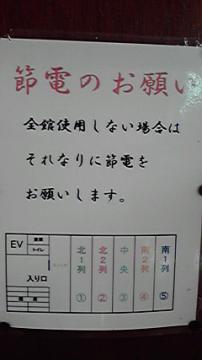 節電のお願い
全館使用しない場合は
それなりに節電を
お願いします。
EV
トイレ
入り口
北1列
①
北2列
②
中央
③
南2列
④
南1列
⑤